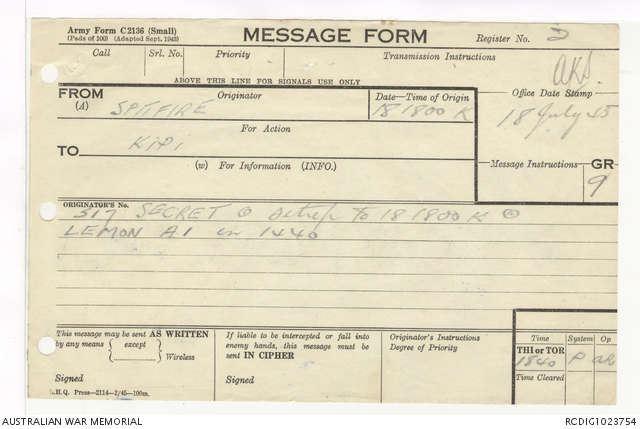 Army Form C2136 (Small)
(Pads of 100) (Adapted Sept. 1943)
MESSAGE FORM
Register No. 3
Call Srl. No. Priority Transmission Instructions
ABOVE THIS LINE FOR SIGNALS USE ONLY
FROM Originator Date—Time of Origin Office Date Stamp
(A) SPITFIRE 18 1800 K
18 July 45
For Action
TO KIPI
(w) For Information (INFO.)
Message Instructions GR
9
ORIGINATOR'S No.
517 SECRET
to 18 1800 K
LEMON A1 in 1440
This message may be sent AS WRITTEN
by any means { except } Wireless
Signed
If liable to be intercepted or fall into
enemy hands, this message must be
sent IN CIPHER
Signed
Originator's Instructions
Degree of Priority
Time System Op
THI or TOR
1840 P
Time Cleared
Press—2114—2/45—100m.
AUSTRALIAN WAR MEMORIAL RCDIG1023754